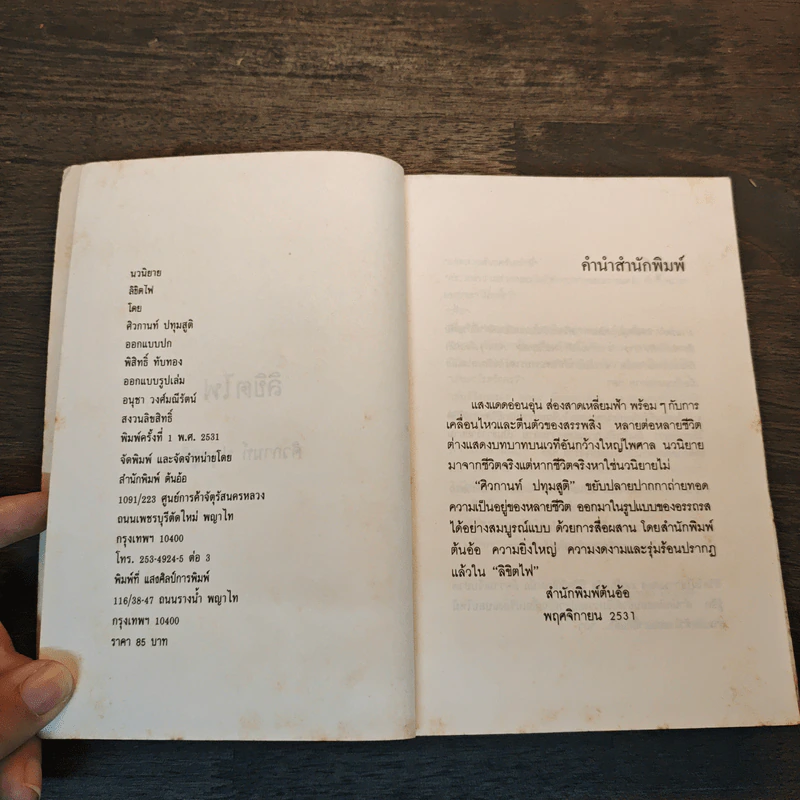 นวนิยาย
ลิขิตไฟ
โดย
ศิวกานท์ ปทุมสูติ
ออกแบบปก
พิสิทธิ์ ทับทอง
ออกแบบรูปเล่ม
อนุชา วงศ์มณีรัตน์
สงวนลิขสิทธิ์
พิมพ์ครั้งที่ 1 พ.ศ. 2531
จัดพิมพ์ และจัดจำหน่ายโดย
สำนักพิมพ์ ต้นอ้อ
1091/223 ศูนย์การค้าจัตุรัสนครหลวง
ถนนเพชรบุรีตัดใหม่ พญาไท
กรุงเทพฯ 10400
โทร. 253-4924-5 ต่อ 3
พิมพ์ที่ แสงศิลป์การพิมพ์
116/38-47 ถนนรางน้ำ พญาไท
กรุงเทพฯ 10400
ราคา 85 บาท
คำนำสำนักพิมพ์
แสงแดดอ่อนอุ่น ส่องสาดเหลี่ยมฟ้า พร้อม ๆ กับการ
เคลื่อนไหวและตื่นตัวของสรรพสิ่ง หลายต่อหลายชีวิต
ต่างแสดงบทบาทบนเวทีอันกว้างใหญ่ไพศาล นวนิยาย
มาจากชีวิตจริงแต่หากชีวิตจริงหาใช่นวนิยายไม่
"ศิวกานท์ ปทุมสูติ" ขยับปลายปากกาถ่ายทอด
ความเป็นอยู่ของหลายชีวิต ออกมาในรูปแบบของอรรถรส
ได้อย่างสมบูรณ์แบบ ด้วยการสื่อผสาน โดยสำนักพิมพ์
ต้นอ้อ ความยิ่งใหญ่ ความงดงามและรุ่มร้อนปรากฏ
แล้วใน "ลิขิตไฟ"
สำนักพิมพ์ต้นอ้อ
พฤศจิกายน 2531